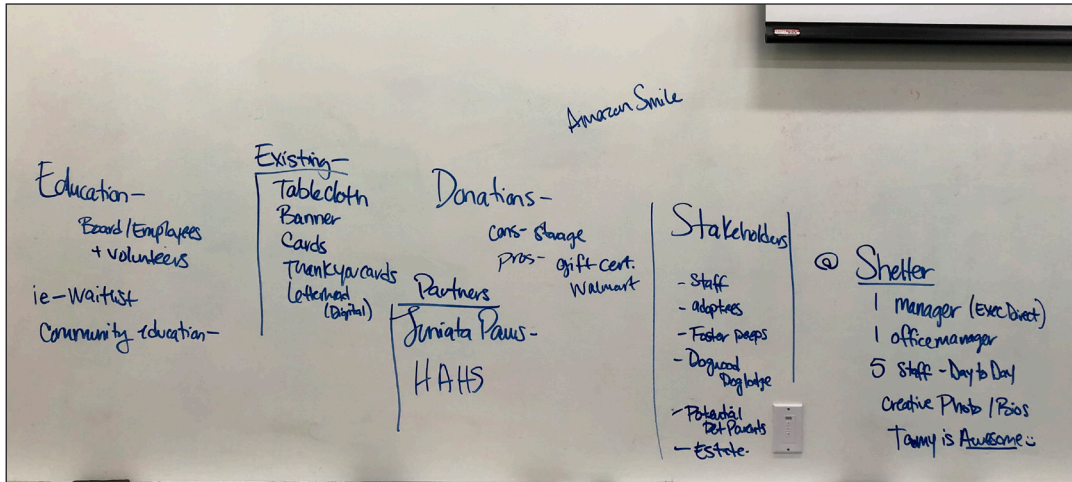 Amazon Smile
Education-
Board/Employees
+ volunteers
ie-Waitlist
Community education-
Existing-
Tablecloth
Banner
Cards
Thankyou cards
Letterhead
(Digital)
Donations-
cons- storage
pros- gift cert.
Walmart
Partners
Juniata Paws-
HAHS
Stakeholders
- Staff
- adoptees
- Foster peeps
- Dogwood
Doglodge
- Potential
Pet Parents
- Estate.
@ Shelter
1 manager (Exec Direct)
1 office manager
5 Staff - Day to Day
Creative Photo / Bios
Tammy is Awesome